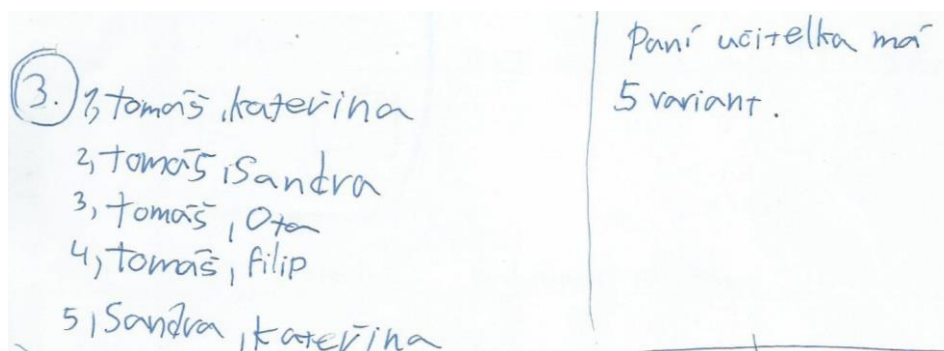 3.
1, tomáš, kateřina
2, tomáš, Sandra
3, tomáš, Ota
4, tomáš, filip
5, Sandra, kateřina
Paní učitelka má
5 variant.